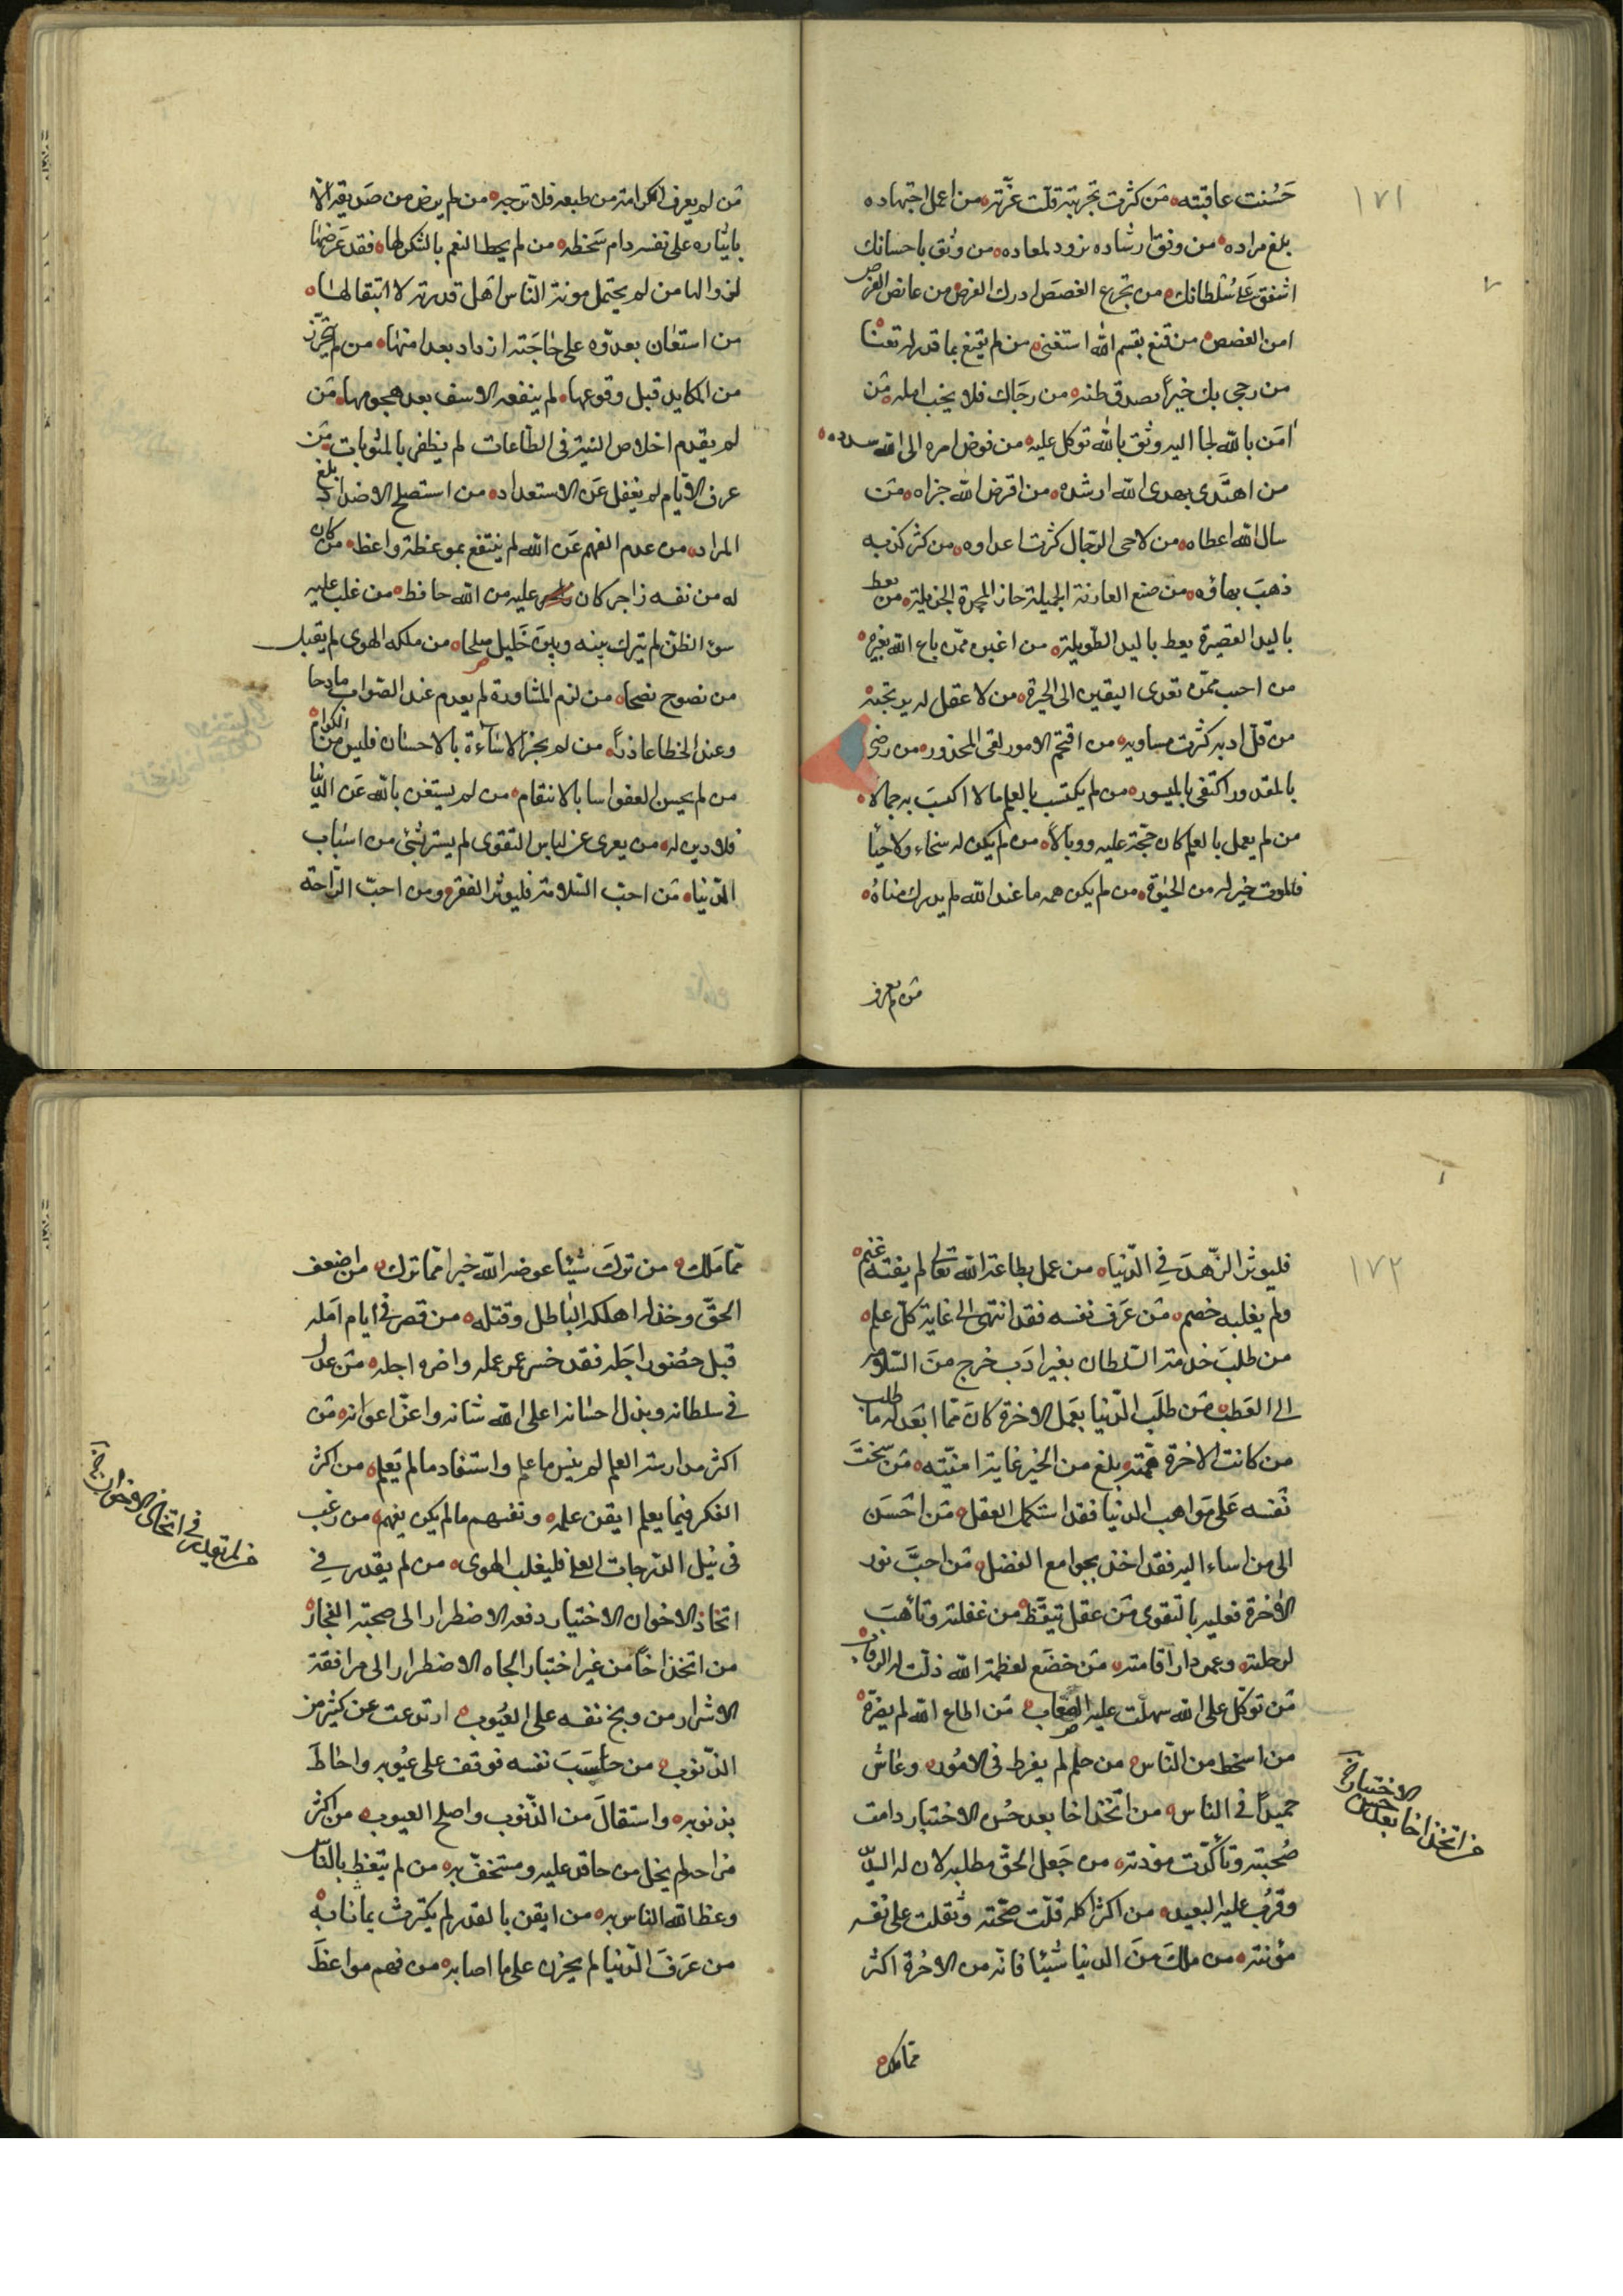 ١٧١
حَسُنت عاقبته من كثرت تجربته قلت غرّته من اعمل اجتهاده
بلغ مراده من وفق ارشاده تزود لمعاده من وثق باحسانك
اشفق على سُلطانك من تجرع الغصص ادرك الفرص من غافص الفرص
امن الغصص من قنع بقسم الله استغنى من لم يقنع بما قدر له تعنا
من رجى بك خيراً فصدق ظنه من رجاك فلا يخب امله من
امن بالله لجا اليه وثق بالله توكل عليه من فوض امره الى الله سدده
من اهتدى بهدى الله ارشده من اقرض الله جزاه من
سال الله اعطاه من لاحى الرجال كثرت اعداوه من كثر كذبه
ذهب بهاؤه من صنع العارفة الجميلة حاز المحمدة الجزيلة من يعط
باليد القصيرة يعط باليد الطويلة من اغبن ممن باع الله بغيره
من اخيب ممن تعدى اليقين الى الحيرة من لا عقل له يرتجيه
من قل ادبه كثرت مساويه من اقتحم الامور لقى المحذور من رضى
بالمقدور اكتفى بالميسور من لم يكتسب بالعلم مالا اكتسب به جمالا
من لم يعمل بالعلم كان حجة عليه ووبالاً من لم يكن له سخاء ولا حيأ
فالموت خير له من الحيوة من لم يكن همه ما عند الله لم يدرك مناه
من لم يعرف
من لم يعرف الكرامة من طبعه فلا ترجه من لم يرض من صديقه الا
بايثاره على نفسه دام سَخطه من لم يحط النعم بالشكر لها فقد عَرضها
لزوالها من لم يحتمل مونة الناس اهل قدرته لانتقالها
من استعان بعدوه على حاجته ازداد بعدا منها من لم يتحرّز
من المكايد قبل وقوعها لم ينفعه الاسف بعد هجومها من
لم يقدم اخلاص النية فى الطاعات لم يظفر بالمثوبات من
عرف الايام لم يغفل عن الاستعداد من استصلح الاضداد بلغ
المراد من عدم الفهم عن الله لم ينتفع بموعظة واعظ من كان
له من نفسه زاجر كان عليه من الله حافظ من غلب عليه
سوء الظن لم يترك بينه وبين خَليل صلحا من ملكه الهوى لم يقبل
من نصوح نصحا من لزم المشاورة لم يعدم عند الصواب مادحا
وعند الخطا عاذراً من لم يجز الاساءة بالاحسان فليس من الكرام
من لم يحسن العفو اسا بالانتقام من لم يستغن بالله عن الدنيا
فلا دين له من يعرى عن لباس التقوى لم يستر بشئ من اسباب
الدنيا من احب السلامة فليوثر الفقر ومن احب الراحة
١٧٢
فليوثر الزهد فِي الدنيا من عمل بطاعة الله تعالى لم يفته غنم
ولم يغلبه خصم من عرف نفسه فقد انتهى الى غاية كل علم
من طلب خدمة السلطان بغير ادب خرج من السلامة
الى العطب من طلب الدنيا بعمل الاخرة كان مما ابعد له ما طلب
من كانت الاخرة همته بلغ من الخير غاية امنيته من سخت
نفسه على مواهب الدنيا فقد استكمل العقل من احسن
الى من اساء اليه فقد اخذ بجوامع الفضل من احبّ نور
الاخرة فعليه بالتقوى من عقل تيقّظ من غفلته وتأهب
لرحلته وعمر دار اقامته من خضع لعظمة الله ذلت له الرقاب
من توكّل على الله سهلت عليه الصعاب من اطاع الله لم يضره
من اسخط من الناس من حلم لم يفرط فى الامُور وعاش
حميداً فى الناس من اتخذ اخا بعد حُسن الاختبار دامت
صُحبته وتأكّدت مودته من جَعل الحقّ مطلبه لان له الشديد
وقرُب عليه البعيد من اكثر اكله قلّت صحّته وثقلت على نفسه
مؤنته من ملك من الدنيا شيئا فاته من الاخرة اكثر
من اتخذ اخا بعد حسن
الاختبار خ
مما ملك
ممّا مَلك من تركَ شيئا عوضه الله خيرا ممّا ترك من اضعف
الحقّ وخذله اهلكه الباطل وقتله من قصر فى ايام امله
قبل حضُور اجَله فقد خسر عمله واضره اجله من عدل
فى سلطانه وبذل احسانه اعلى الله شانه واعزّ اعوانه من
اكثر مدارسة العلم لم ينس ما علم واستفاد ما لم يَعلم من اكثر
الفكر فيما يعلم ايقن علمه وتفهم ما لم يكن يفهم من رغب
فى نيل الدرجات العلى فليغلب الهوى من لم يقدر فِي
اتخاذ الاخوان الاختيار دفعه الاضطرار الى صحبة الفجار
من اتخذ اخاً من غير اختبار الجاه الاضطرار الى مرافقة
الاشرار من وبخ نفسه على العُيوب ارتدعت عن كثير من
الذنوب من حاسَبَ نفسه فوقف على عيُوبه واحَاطَ
بذنوبه واستقالَ من الذنوب واصلح العيوب من اكثر
مزاحه لم يخل من حاقد عليه ومستخفّ به من لم يتعظ بالناس
وعظ الله الناس به من ايقن بالقدر لم يكترث بما نابه
من عَرَفَ الدّنيا لم يحزن على ما اصابه من فهم مواعظَ
من لم يقدر فى اتخاذ الاخوان خ